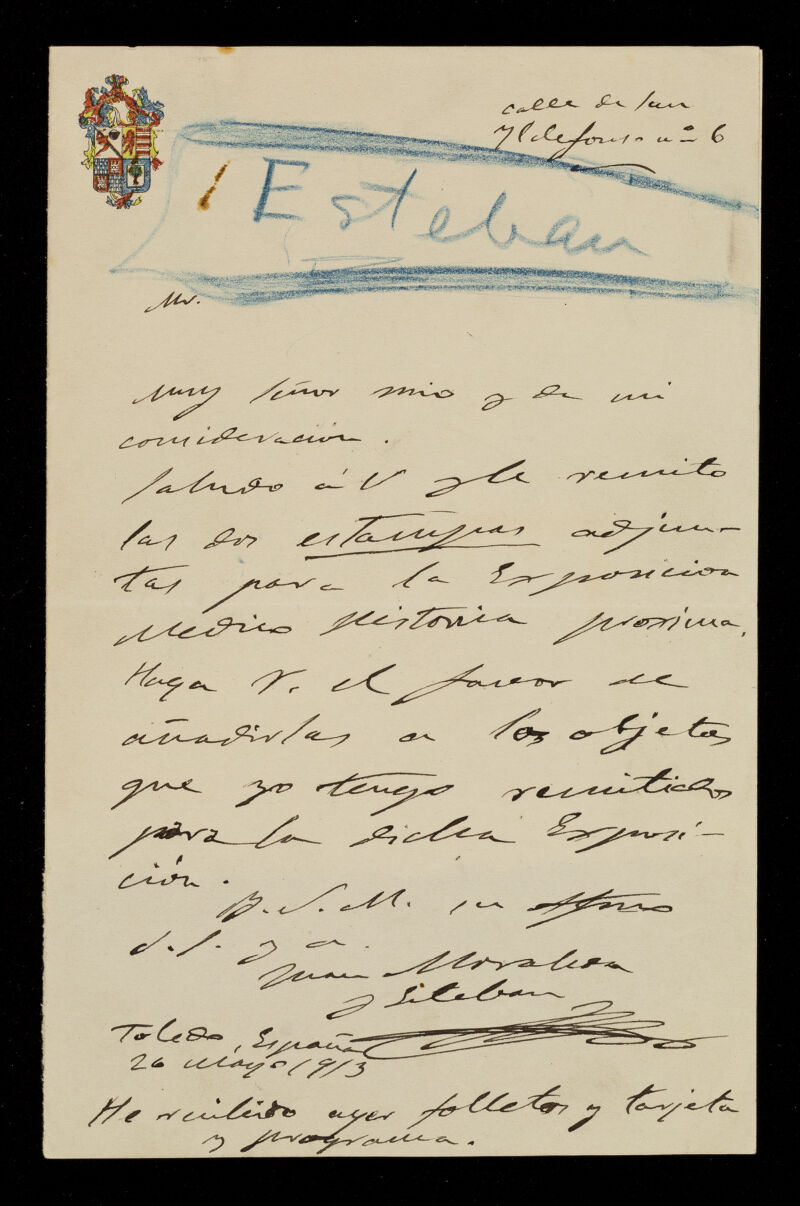 calle de San
Yldefonso nº 6
Esteban
Mr.
Muy Señor mio y de mi
consideración.
Saludo á V y le remito
las dos estampas adjun-
tas para la Exposicion
Medico Historica proxima.
Haga V. el favor de
añadirlas a los objetos
que yo tengo remitidos
para la dicha Exposi-
ción.
B. S. M. su Afmo
S. S. y a.
Juan Moraleda
y Esteban
Toledo, España
26 Mayo 1913
He recibido ayer folletos y tarjeta
y programa.